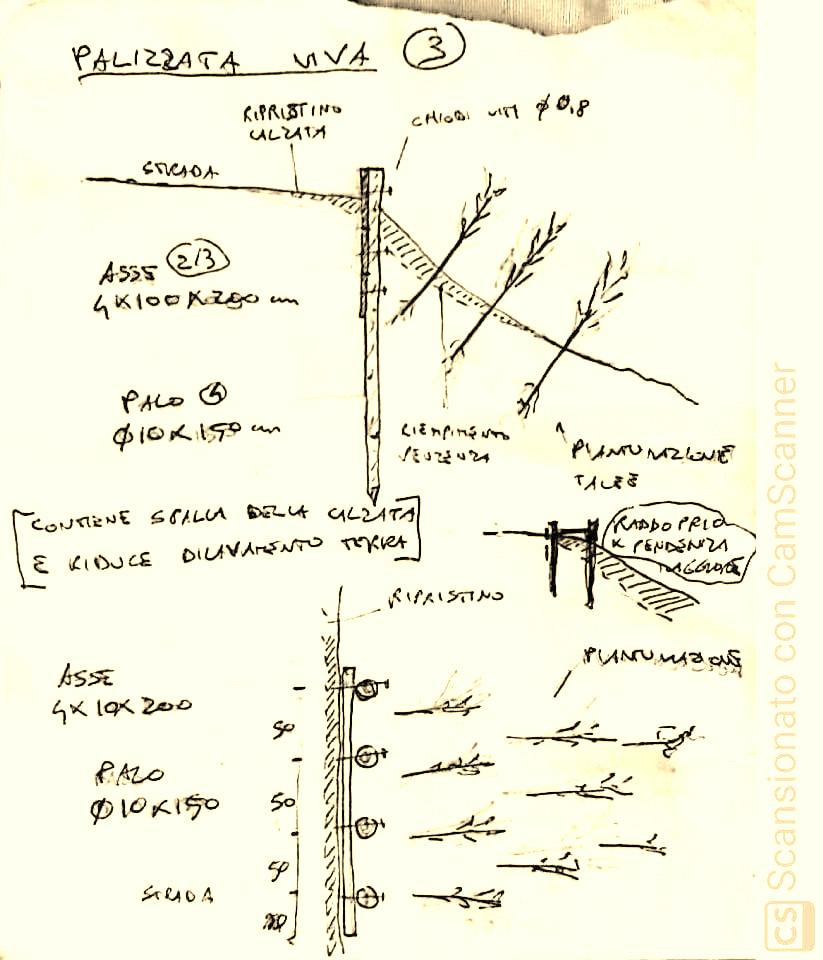 PALIZZATA VIVA 3
RIPRISTINO
CALZATA
CHIODI VITI ϕ 0,8
STRADA
ASSE 2/3
4X100X200 cm
PALO 4
Ø10X150 cm
RIEMPIMENTO
PENDENZA
PIANTUMAZIONE
TALEE
[CONTIENE SPALLA DELLA CALZATA
E RIDUCE DILAVAMENTO TERRA]
RADDOPPIO
X PENDENZA
MAGGIORE
RIPRISTINO
PIANTUMAZIONE
ASSE
4X10X200
50
PALO
Ø10X150
50
50
STRADA
CS Scansionato con CamScanner